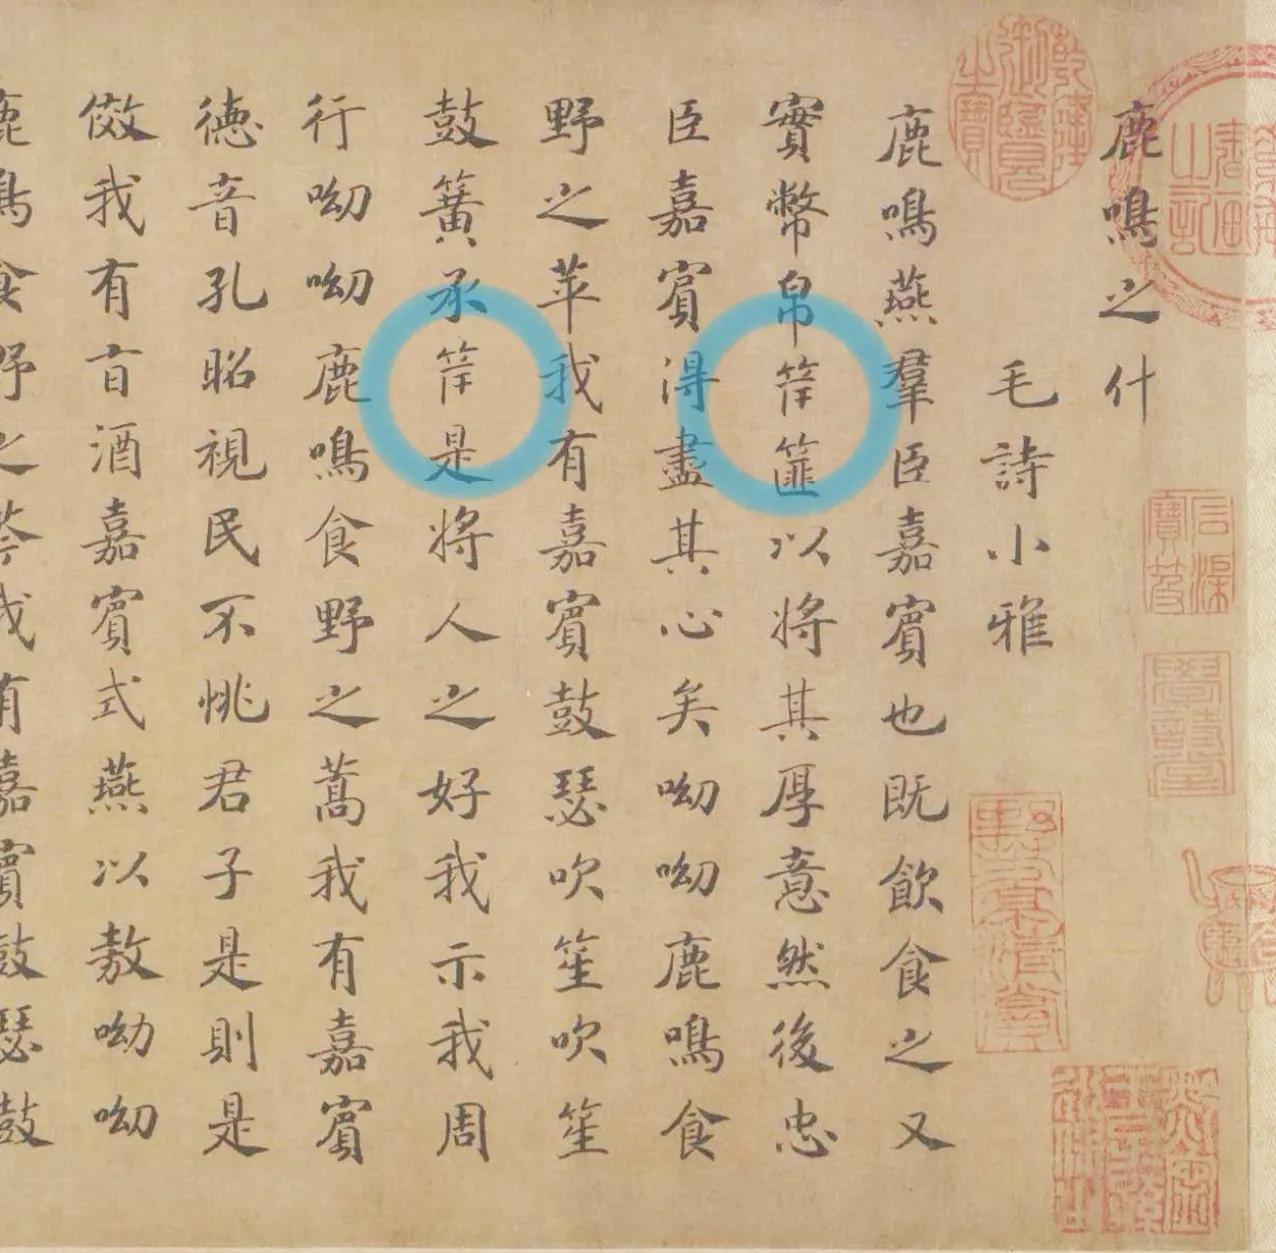 鹿鳴之什
毛詩小雅
鹿鳴燕羣臣嘉賔也既飲食之又
實幣帛筐篚以将其厚意然後忠
臣嘉賔得盡其心矣呦呦鹿鳴食
野之苹我有嘉賔鼓瑟吹笙吹笙
鼓簧承筐是将人之好我示我周
行呦呦鹿鳴食野之蒿我有嘉賔
德音孔昭視民不恌君子是則是
傚我有旨酒嘉賔式燕以敖呦呦
鹿鳴食野之芩我有嘉賔鼓瑟鼓
乾隆御覽之寶
學詩堂